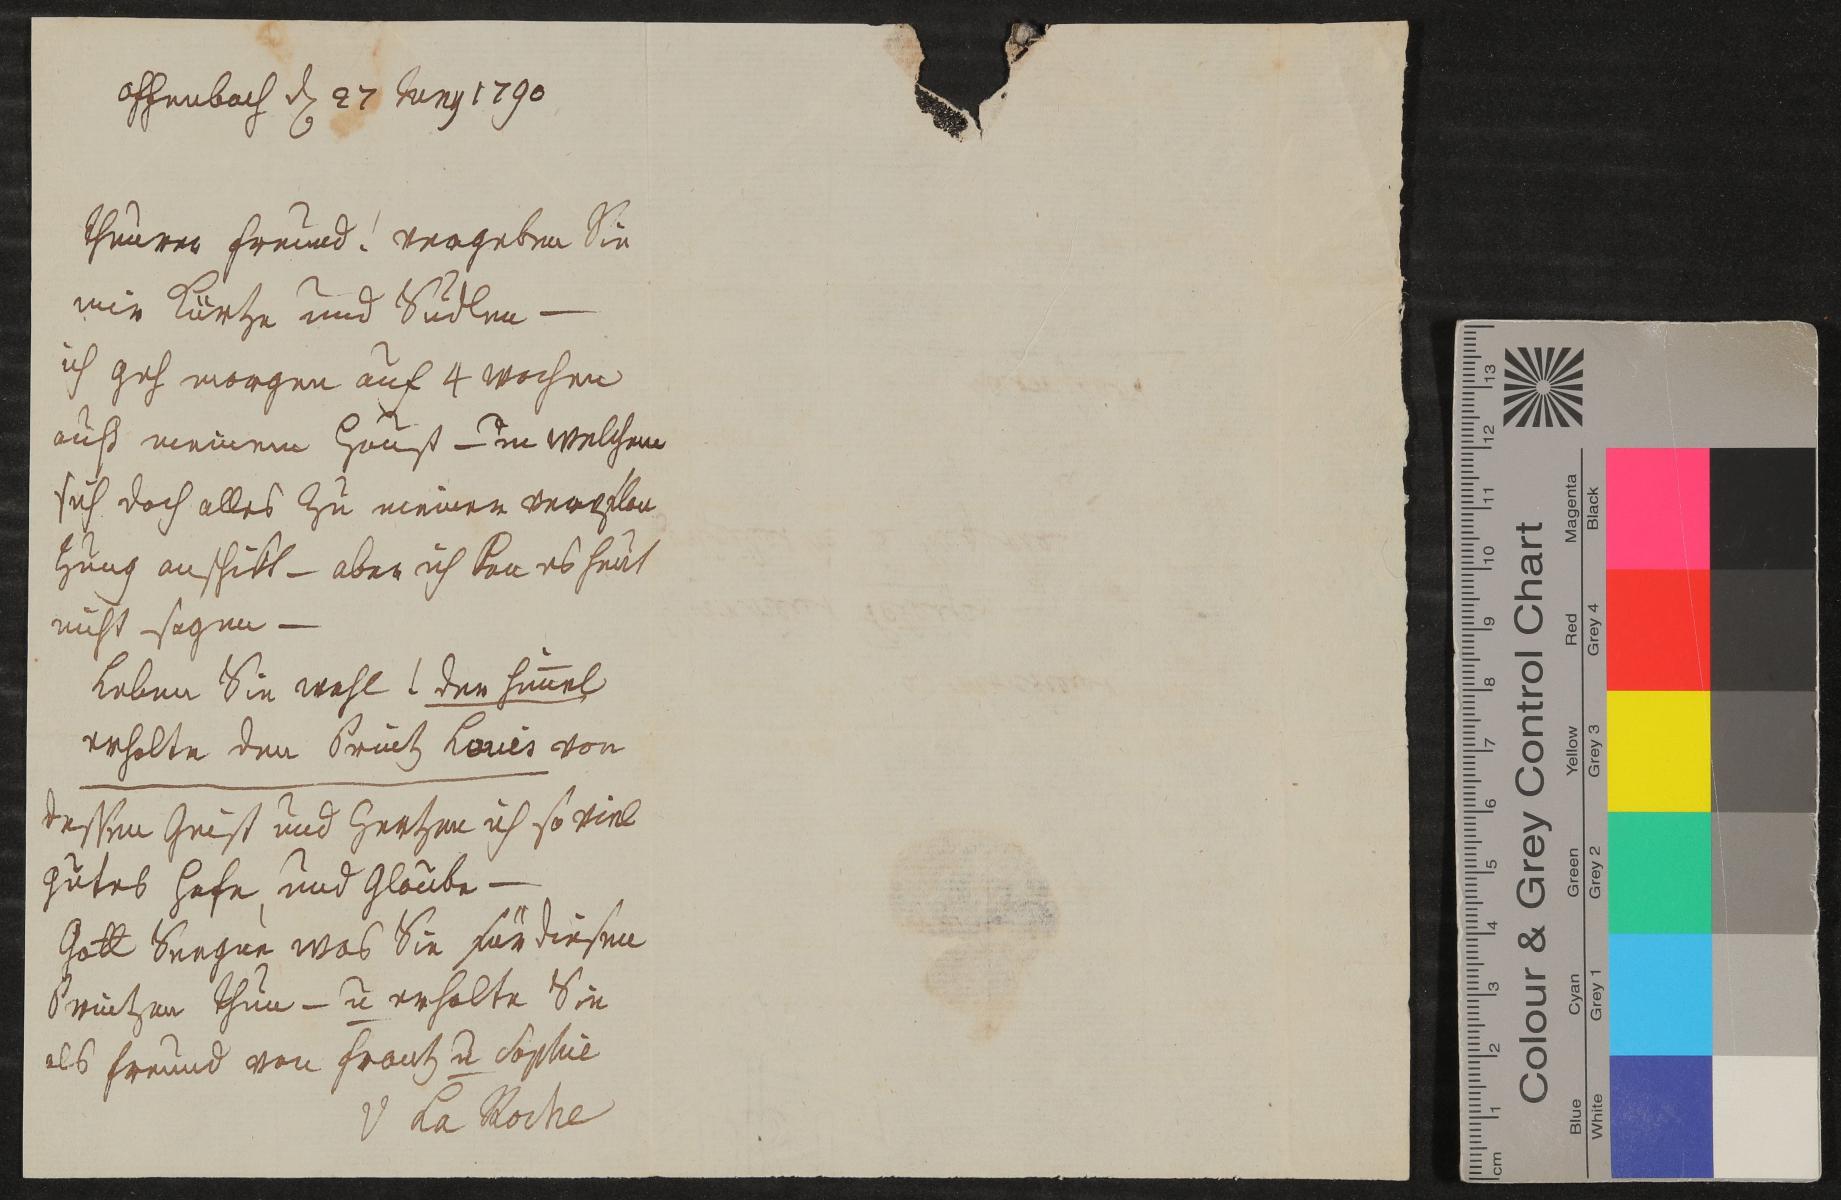 offenbach d 27 Juny 1790
theurer Freund! vergeben Sie
mir Kürtze und Sudlen —
ich geh morgen auf 4 wochen
auß meinem Hauß — in welchem
sich doch alles zu meiner verpflan
tzung anschikt — aber ich kan es heut
nicht sagen —
Leben Sie wohl! der himel
erhalte den Printz Louis von
dessen Geist und Hertzen ich so viel
gutes hofe, und glaube —
Gott Seegne was Sie für diesen
Printzen thun — u erhalte Sie
als freund von frantz u Sophie
v La Roche
Colour & Grey Control Chart
Blue Cyan Green Yellow Red Magenta
White Grey 1 Grey 2 Grey 3 Grey 4 Black
cm 1 2 3 4 5 6 7 8 9 10 11 12 13